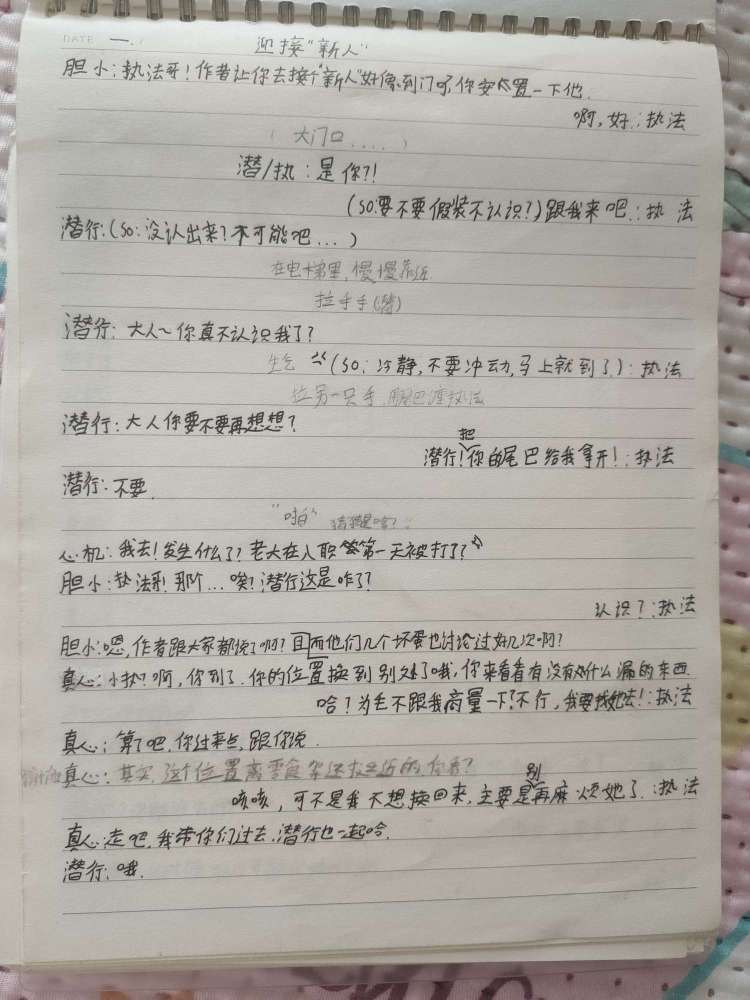 DATE 一.
迎接“新人”
胆小:执法哥!作者让你去接个“新人”好像到门了,你安置一下他.
啊,好:执法
(大门口....)
潜/执:是你?!
(SO:要不要假装不认识?)跟我来吧:执法
潜行:(SO:没认出来?不可能吧...)
在电梯里,慢慢靠近
拉手手(潜)
潜行:大人~你真不认识我了?
生气 (SO:冷静,不要冲动,马上就到了):执法
拉另一只手,尾巴缠执法
潜行:大人你要不要再想想?
潜行!把你的尾巴给我拿开!:执法
潜行:不要.
“啪”
心机:我去!发生什么了?老大在入职第一天被打了?
胆小:执法哥!那个...唉?潜行这是咋了?
认识?:执法
胆小:嗯,作者跟大家都说了啊?且而他们几个坏蛋也讨论过好几次啊?
真心:小执?啊,你到了.你的位置换到别处了哦,你来看看有没有什么漏的东西
哈?为毛不跟我商量一下?不行,我要找她去!:执法
真心:算了吧,你过来点,跟你说.
真心:其实,这个位置离零食架还挺近的,你看?
咳咳,可不是我不想换回来,主要是别再麻烦她了:执法
真心:走吧,我带你们过去,潜行也一起哈.
潜行:哦.